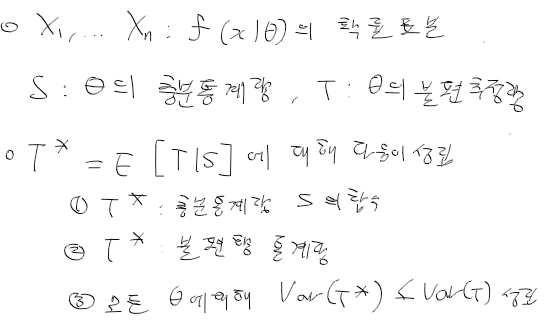 o X₁, ... Xₙ : f(x|θ)의 확률표본
S : θ의 충분통계량, T : θ의 불편추정량
o T* = E[T|S]에 대해 다음이 성립
① T* : 충분통계량 S의 함수
② T* : 불편향 통계량
③ 모든 θ에 의해 Var(T*) ≤ Var(T) 성립